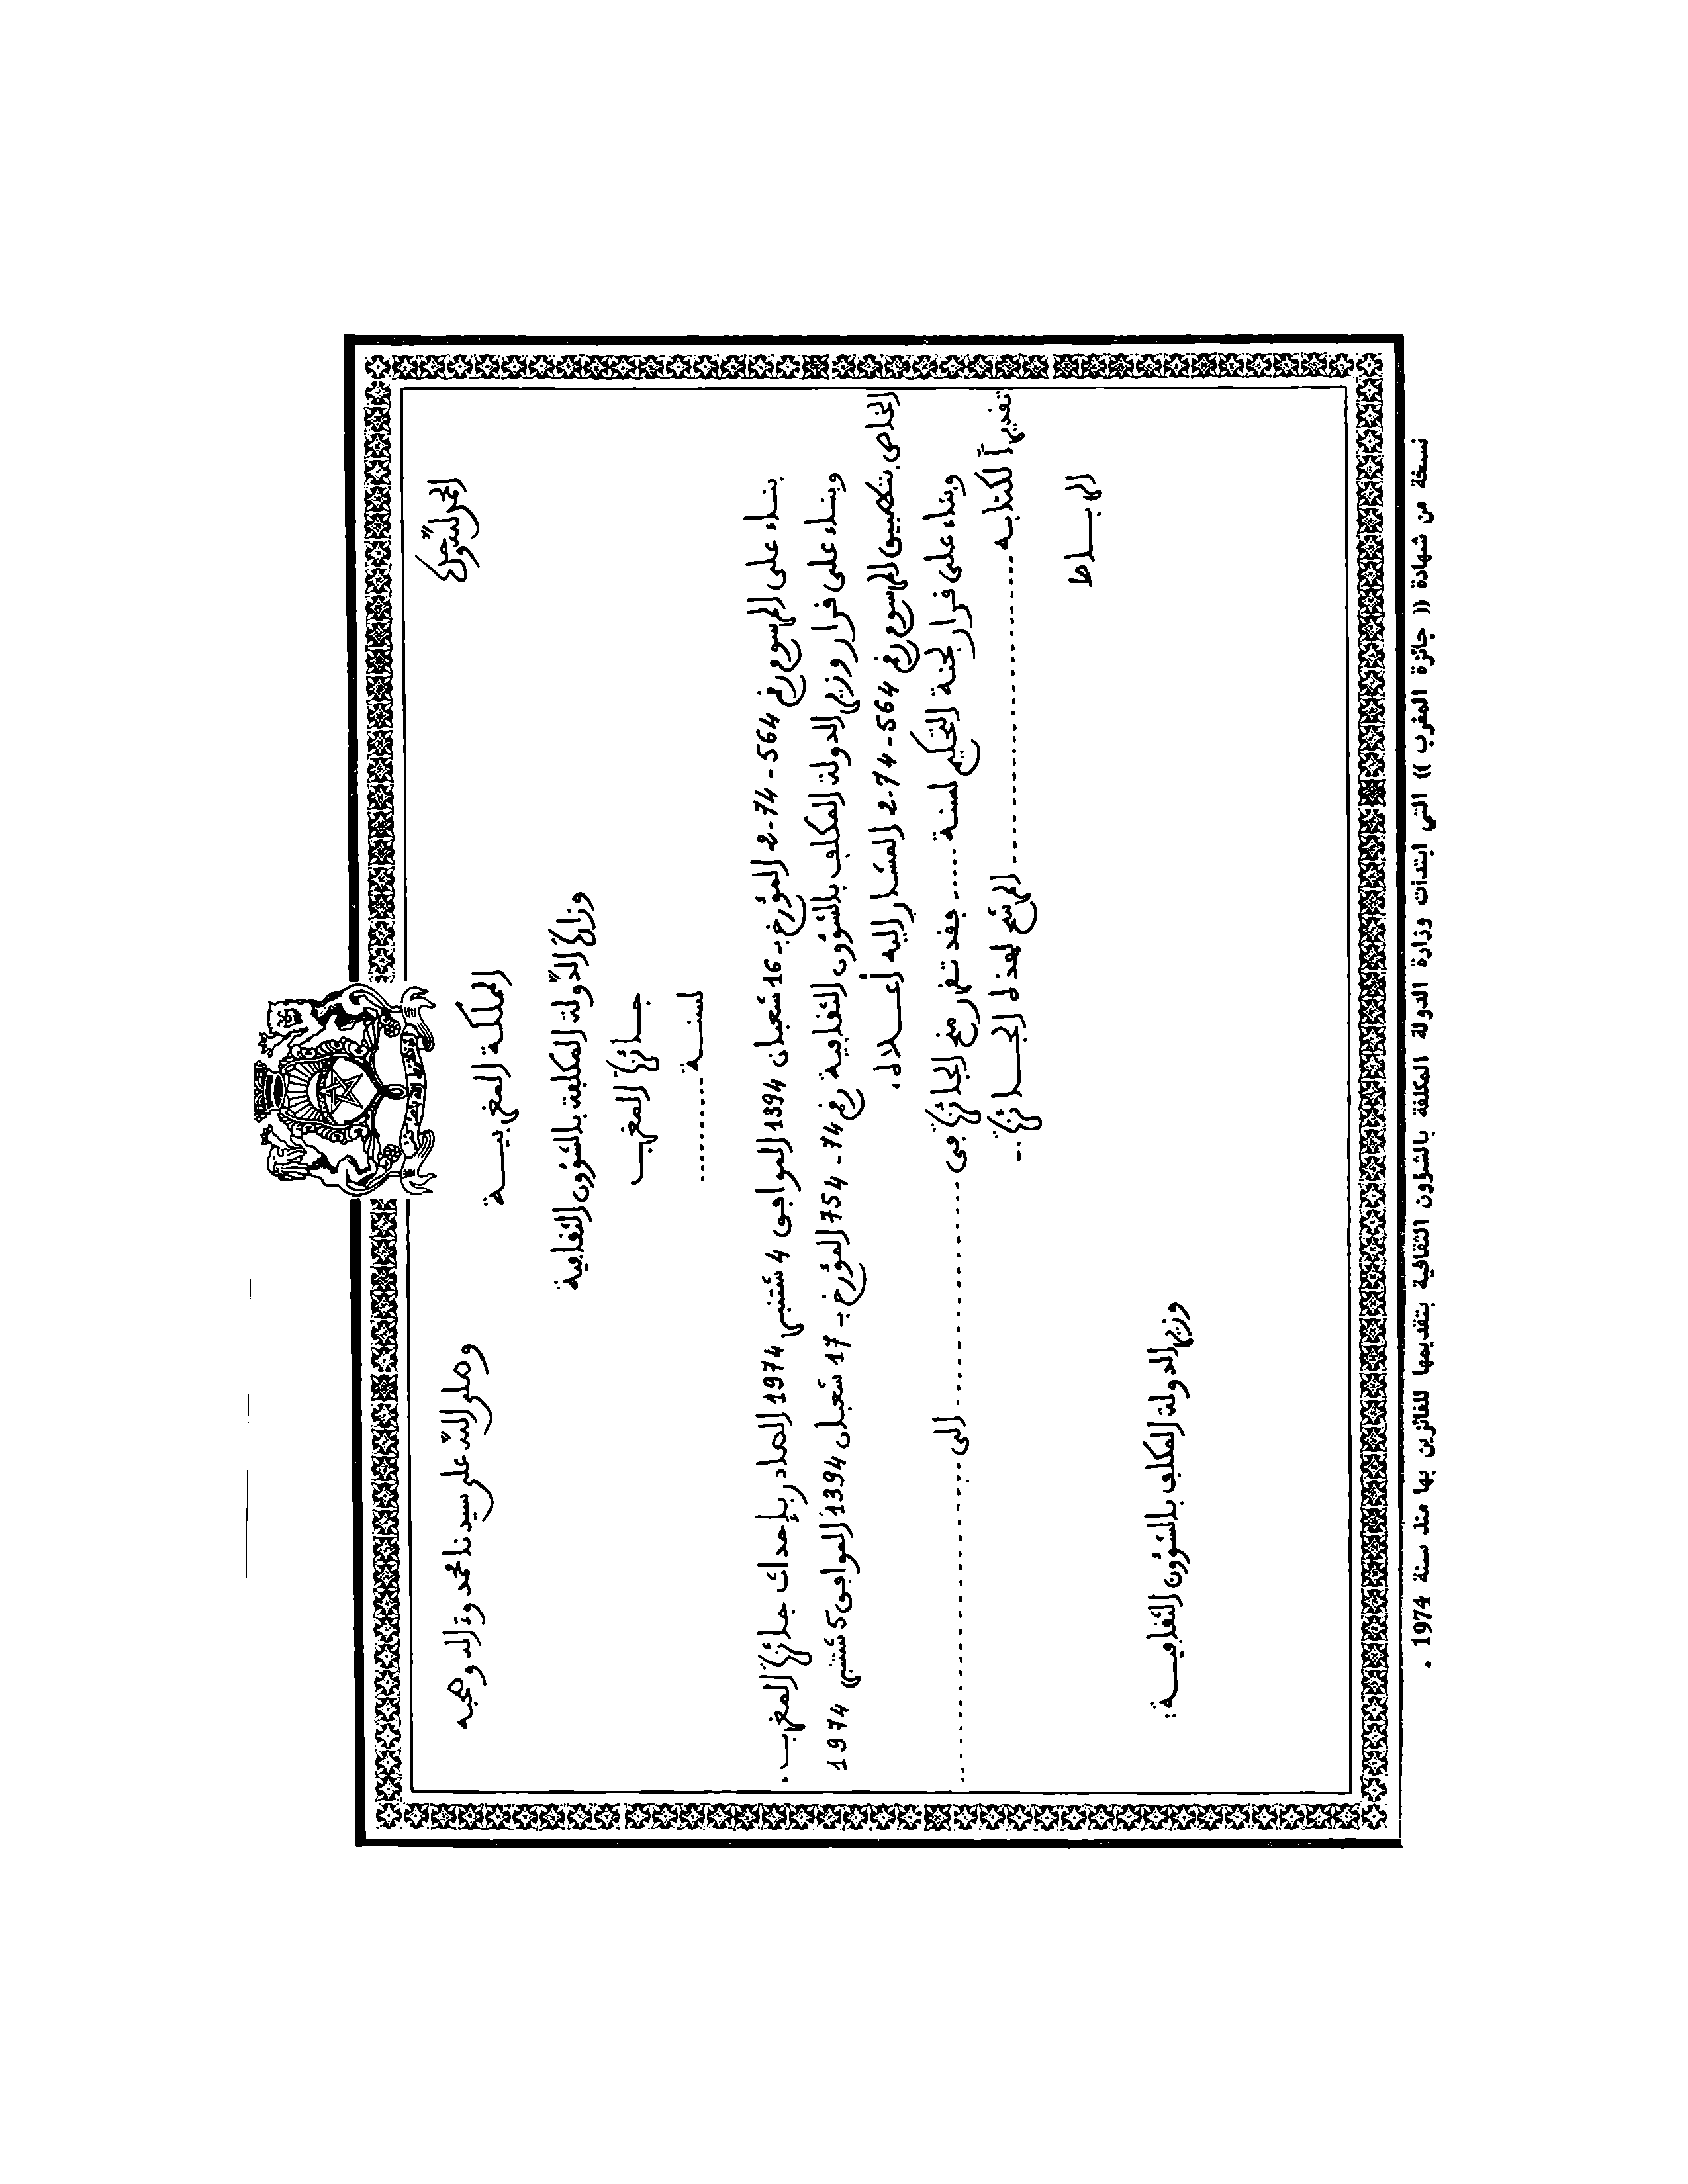 الحمد لله وحده
وصلى الله على سيدنا محمد وءاله وصحبه
المملكة المغربيـــة
وزارة الدولة المكلفة بالشؤون الثقافية
جــائزة المغرب
لسنــة ........
بنــاء على المرسوم رقم 564-74-2 المؤرخ بـ 16 شعبان 1394 الموافق 4 شتنبر 1974 الصادر بإحداث جائزة المغرب.
وبنــاء على قرار وزير الدولة المكلف بالشؤون الثقافية رقم 74-754 المؤرخ بـ 17 شعبان 1394 الموافق 5 شتنبر 1974
الخاص بتطبيق المرسوم رقم 564-74-2 المشار إليه أعـــلاه.
وبناء على قرار لجنة التحكيم لسنة ........ فقد تقرر منح الجائزة في ........................ الى ........................
تقديراً لكتابه ........................ المرشح لهذه الجــائزة..
الربــاط
وزير الدولة المكلف بالشؤون الثقافيــة:
نسخة من شهادة (( جائزة المغرب )) التي ابتدأت وزارة الدولة المكلفة بالشؤون الثقافية بتقديمها للفائزين بها منذ سنة 1974 .